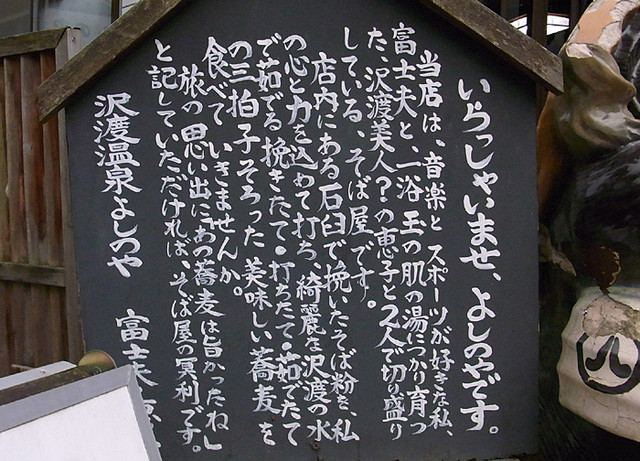 いらっしゃいませ、よしのやです。
当店は、音楽とスポーツが好きな私、
富士夫と、一浴玉の肌の湯につかり育っ
た、沢渡美人？の恵子と2人で切り盛り
している、そば屋です。
店内にある石臼で挽いたそば粉を、私
の心と力を込めて打ち、綺麗な沢渡の水
で茹でる挽きたて・打ちたて・茹でたて
の三拍子そろった美味しい蕎麦を
食べていきませんか。
旅の思い出に「あの蕎麦は旨かったね」
と記していただければ、そば屋の冥利です。
沢渡温泉よしのや
富士夫
八